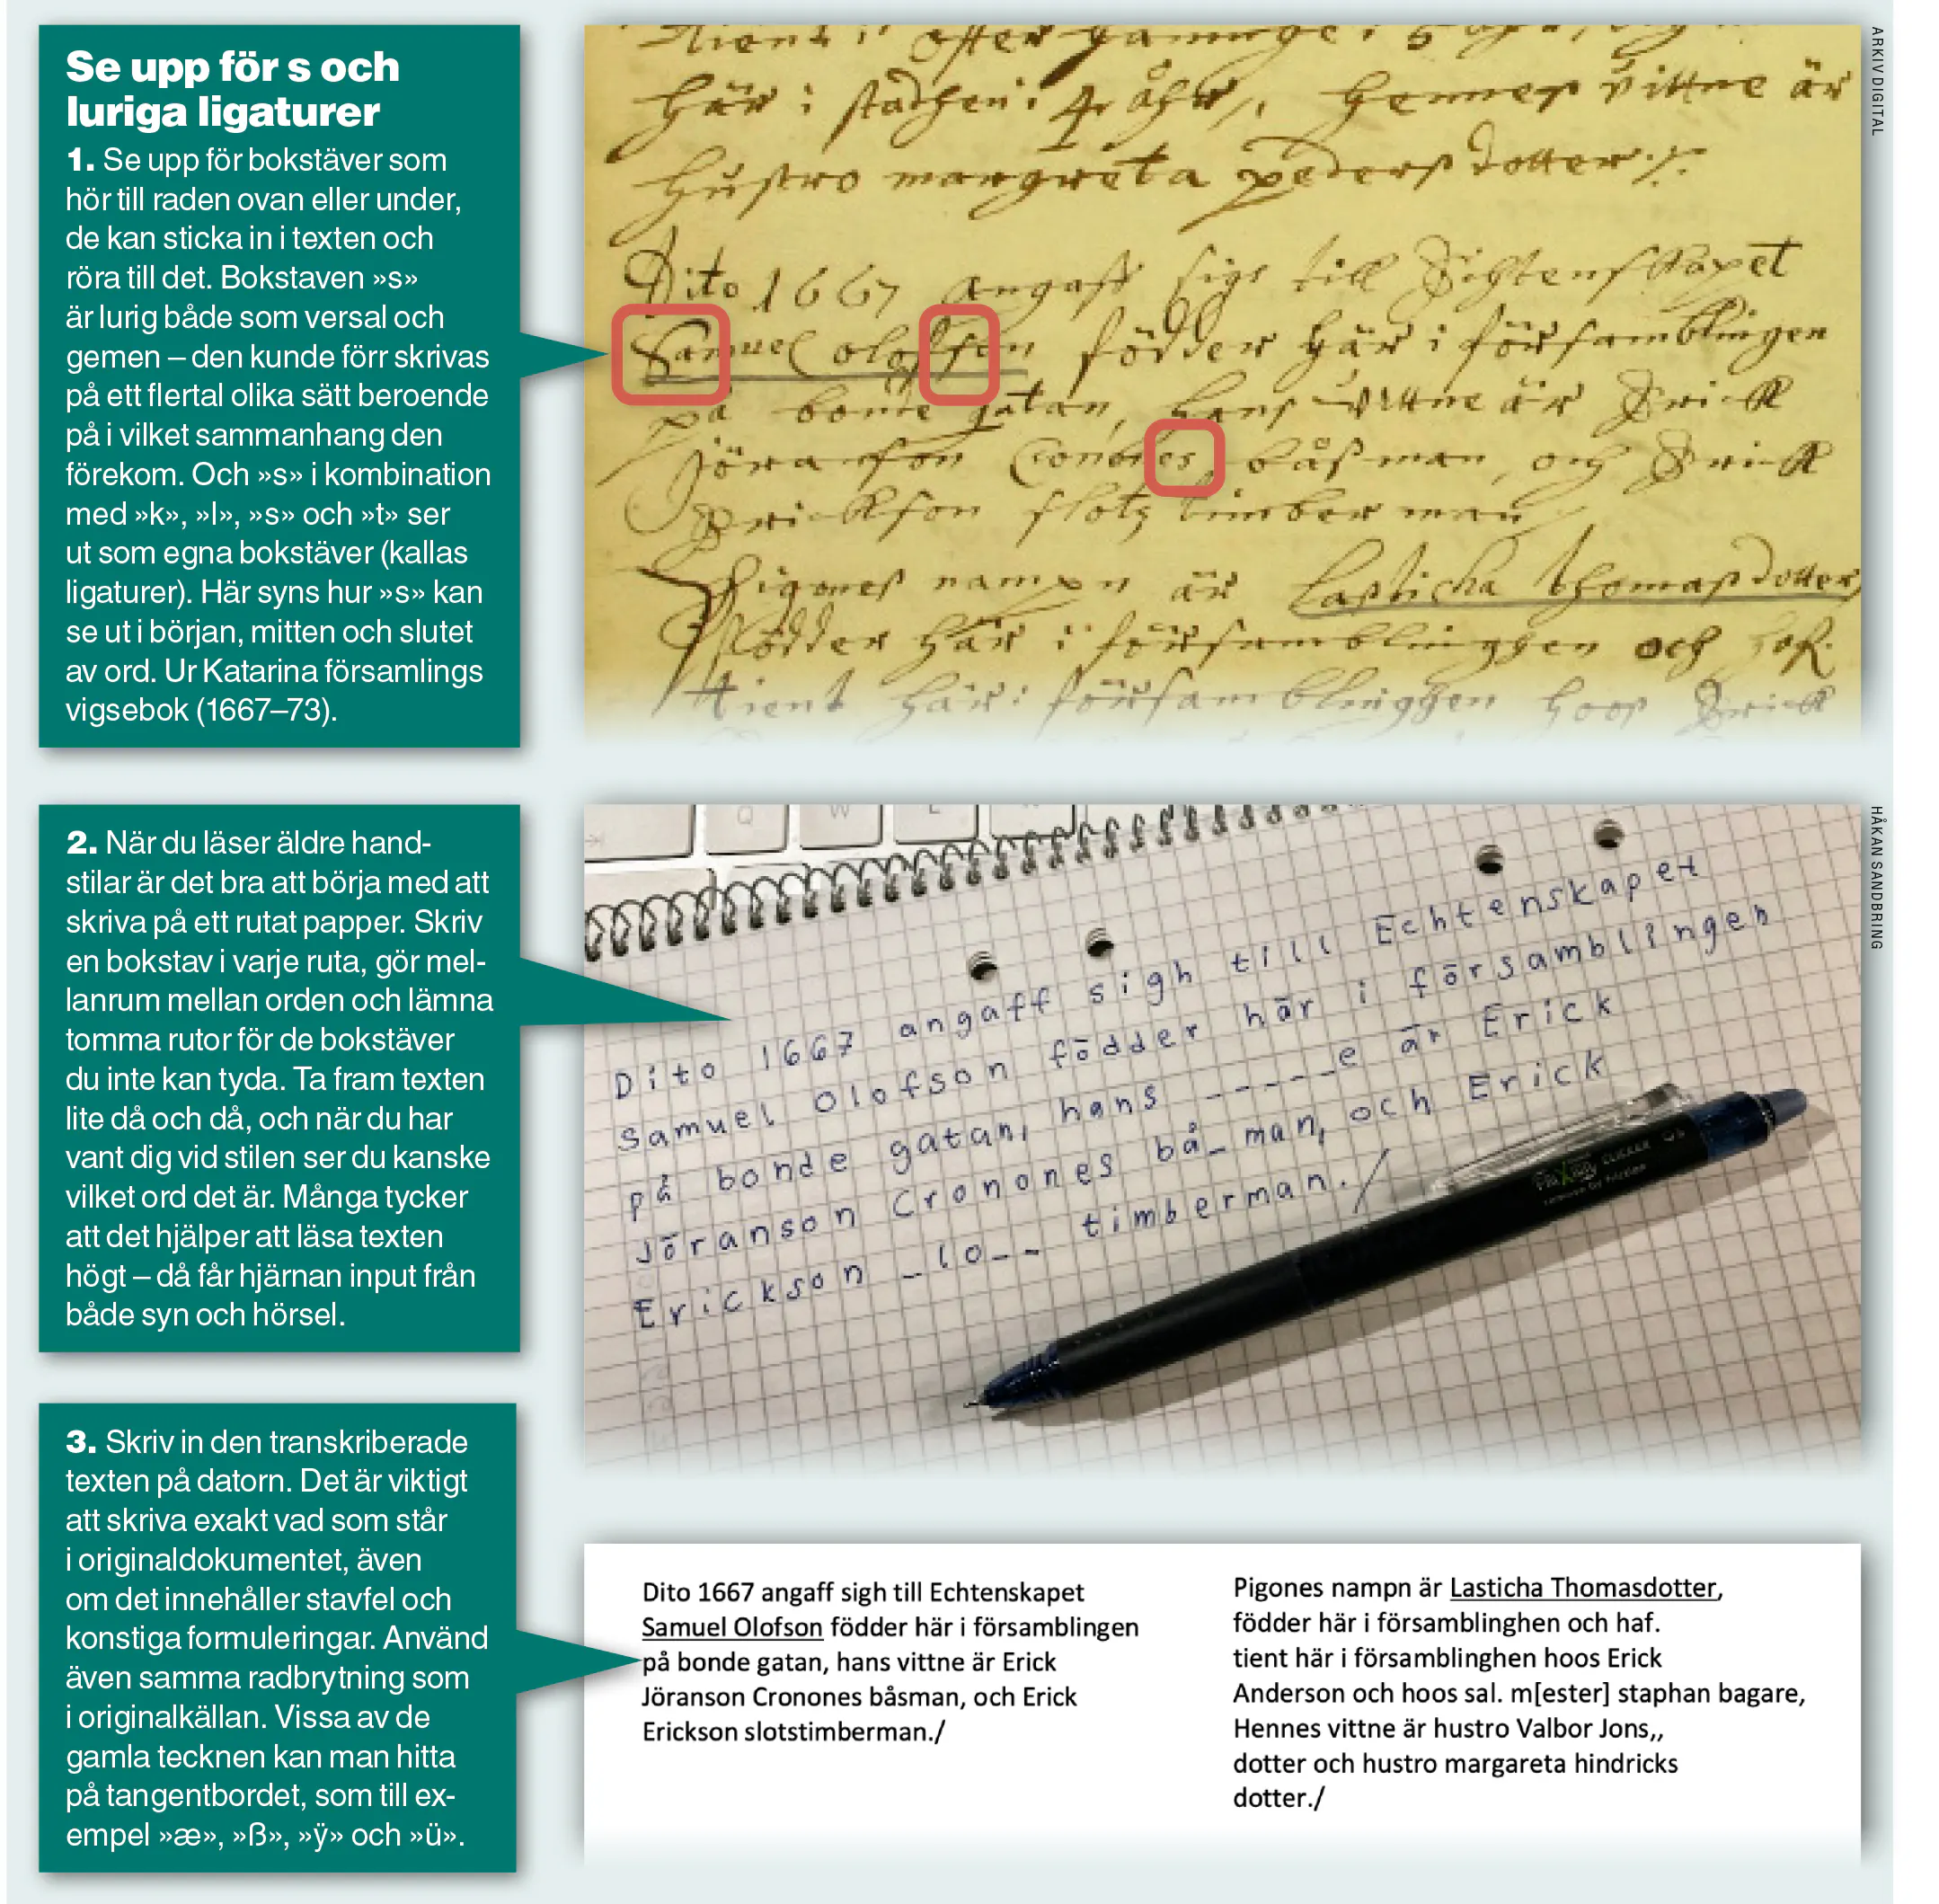 Se upp för s och
luriga ligaturer
1. Se upp för bokstäver som
hör till raden ovan eller under,
de kan sticka in i texten och
röra till det. Bokstaven »s»
är lurig både som versal och
gemen – den kunde förr skrivas
på ett flertal olika sätt beroende
på i vilket sammanhang den
förekom. Och »s» i kombination
med »k», »l», »s» och »t» ser
ut som egna bokstäver (kallas
ligaturer). Här syns hur »s» kan
se ut i början, mitten och slutet
av ord. Ur Katarina församlings
vigsebok (1667–73).
här i staden i 4 åhr, hennes vittne är
hustro margreta pedersdotter
Dito 1667 angaff sigh till Echtenskapet
Samuel olofson födder här i församblingen
på bonde gatan, hans vittne är Erick
Jöranson Cronones båsman, och Erick
Erickson slotz timberman
Pigones nampn är Lasticha thomasdotter
födder här i församblinghen och haf.
tient här i församblinghen hoos Erick
ARKIV DIGITAL
2. När du läser äldre hand-
stilar är det bra att börja med att
skriva på ett rutat papper. Skriv
en bokstav i varje ruta, gör mel-
lanrum mellan orden och lämna
tomma rutor för de bokstäver
du inte kan tyda. Ta fram texten
lite då och då, och när du har
vant dig vid stilen ser du kanske
vilket ord det är. Många tycker
att det hjälper att läsa texten
högt – då får hjärnan input från
både syn och hörsel.
Q W E
Dito 1667 angaff sigh till Echtenskapet
Samuel Olofson födder här i församblingen
på bonde gatan, hans _____e är Erick
Jöranson Cronones bå_man, och Erick
Erickson _lo__ timberman./
CLICKER
HÅKAN SANDBRING
3. Skriv in den transkriberade
texten på datorn. Det är viktigt
att skriva exakt vad som står
i originaldokumentet, även
om det innehåller stavfel och
konstiga formuleringar. Använd
även samma radbrytning som
i originalkällan. Vissa av de
gamla tecknen kan man hitta
på tangentbordet, som till ex-
empel »æ», »ß», »ÿ» och »ü».
Dito 1667 angaff sigh till Echtenskapet
Samuel Olofson födder här i församblingen
på bonde gatan, hans vittne är Erick
Jöranson Cronones båsman, och Erick
Erickson slotstimberman./
Pigones nampn är Lasticha Thomasdotter,
födder här i församblinghen och haf.
tient här i församblinghen hoos Erick
Anderson och hoos sal. m[ester] staphan bagare,
Hennes vittne är hustro Valbor Jons,,
dotter och hustro margareta hindricks
dotter./